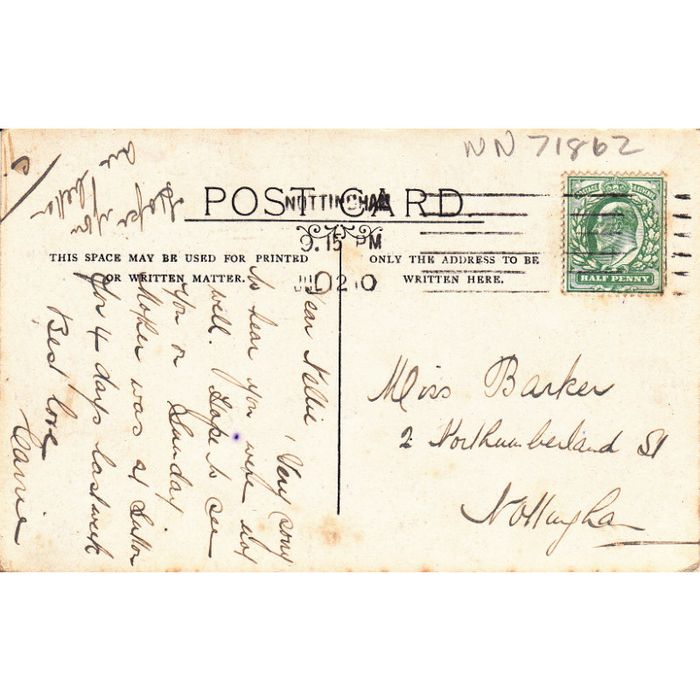 WN 71862
POST CARD.
NOTTINGHAM
9.15 PM
JUL 2 10
THIS SPACE MAY BE USED FOR PRINTED
OR WRITTEN MATTER.
ONLY THE ADDRESS TO BE
WRITTEN HERE.
POSTAGE & REVENUE
HALF PENNY
Miss Barker
2 Northumberland St
Nottingham
Dear Nellie, Very sorry
to hear you were not
well. Hope to see
you on Sunday.
was at Sutton
for 4 days last week
Best love
Carrie
Hope you
are better